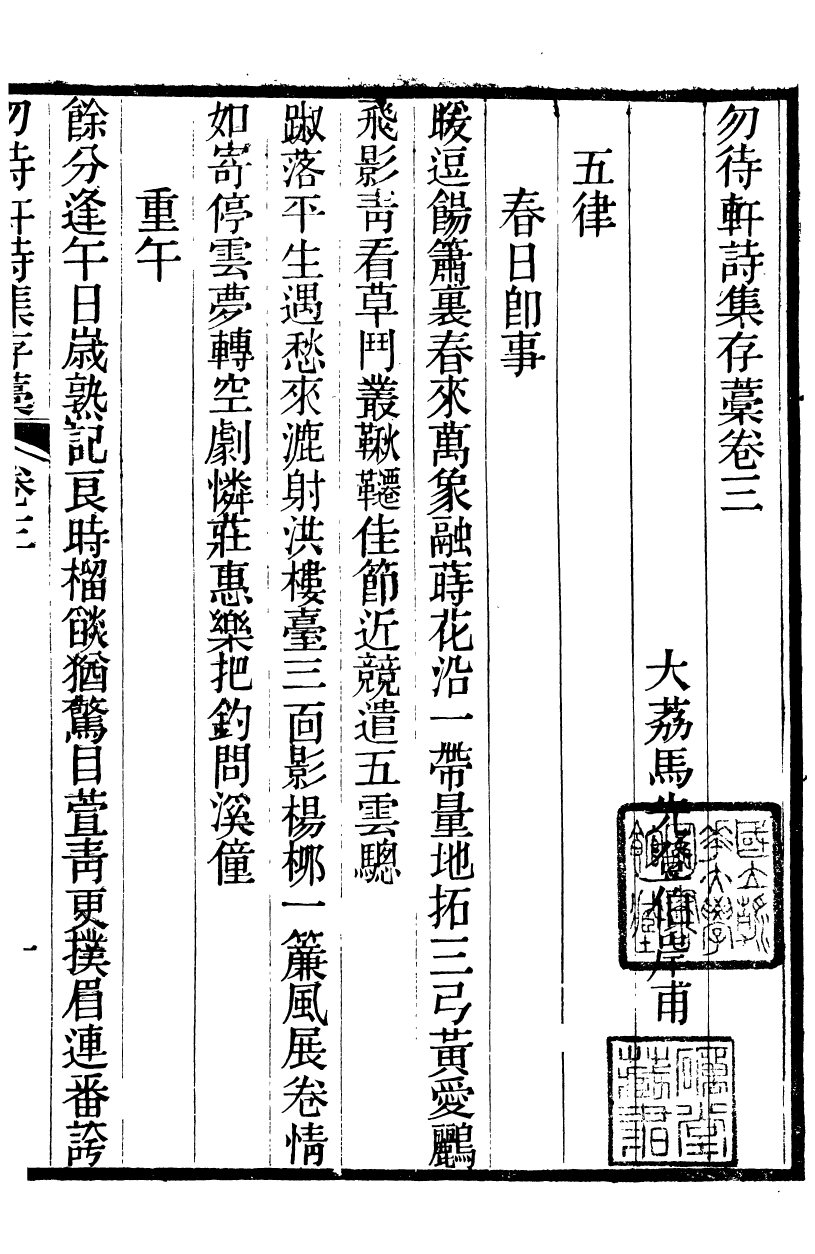 勿待軒詩集存藁卷三
大荔馬先登伯岸甫
五律
春日卽事
暖逗餳簫裏春來萬象融蒔花沿一帶量地拓三弓黃愛鸝
飛影靑看草鬥叢鞦韆佳節近競遣五雲驄
踧落平生遇愁來漉射洪樓臺三面影楊桺一簾風展卷情
如寄停雲夢轉空劇憐莊惠樂把釣問溪僮
重午
餘分逢午日歲熟記良時榴燄猶驚目萱靑更撲眉連番誇
勿待軒詩集存藁
卷三
一